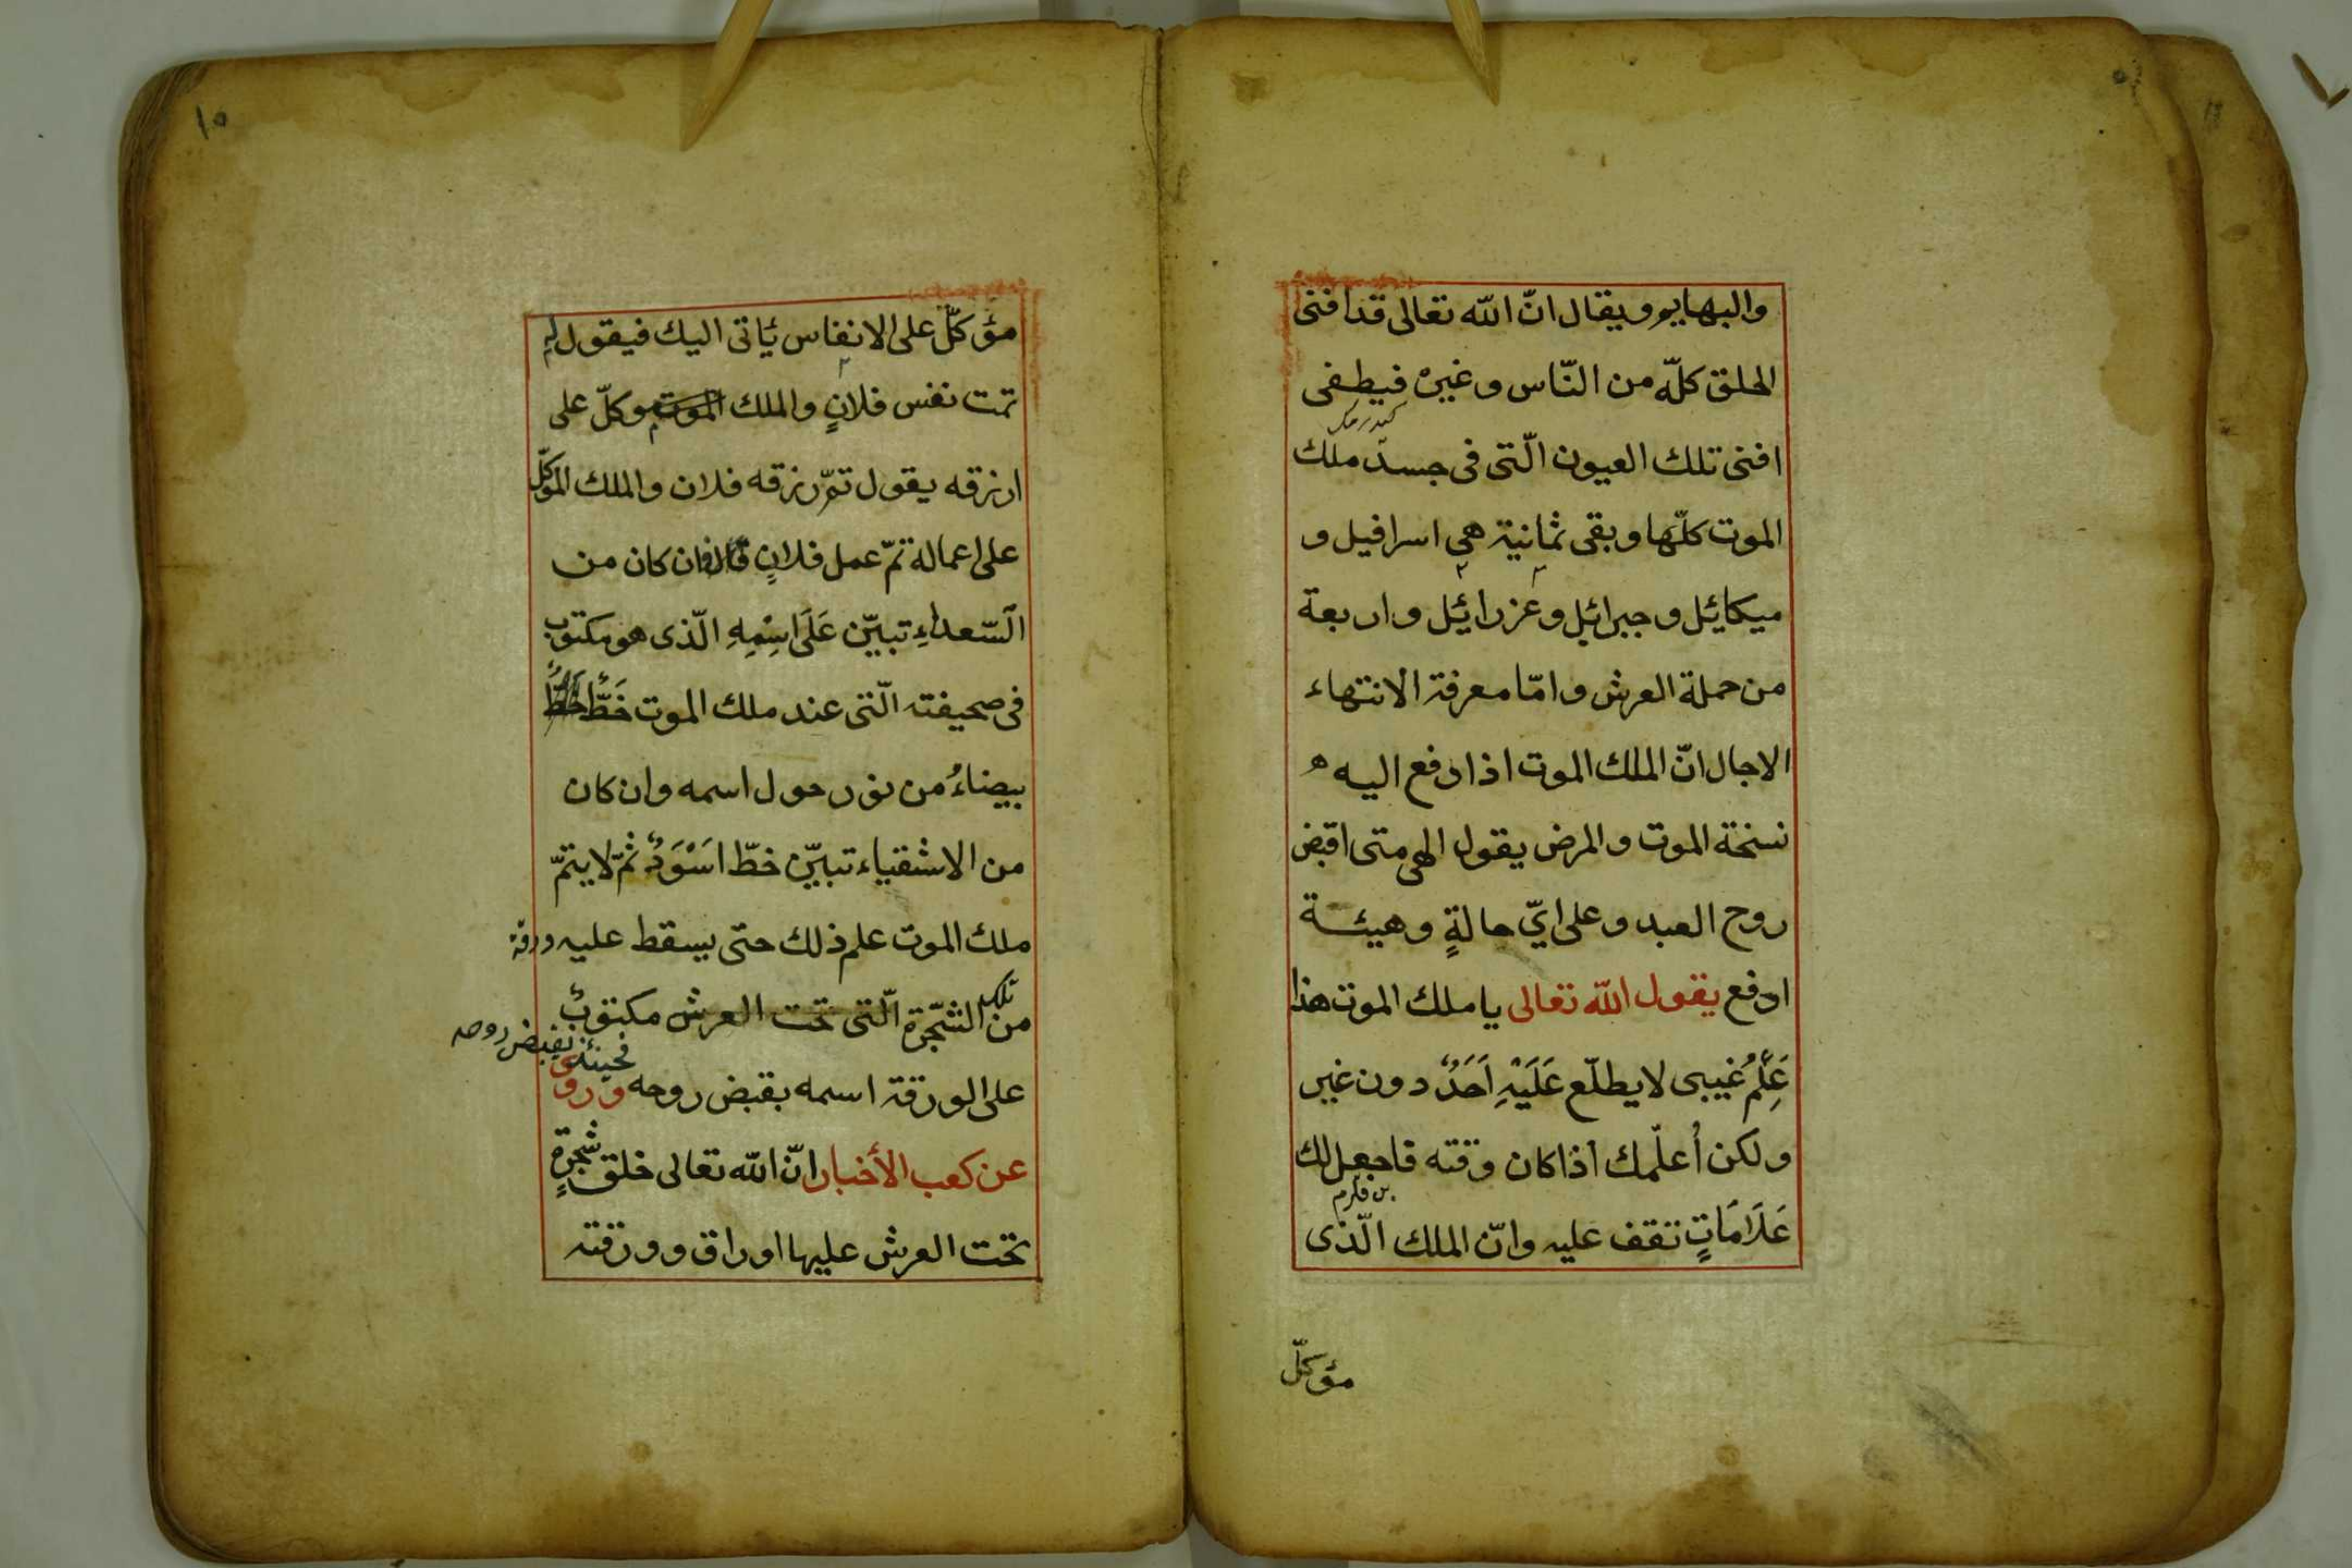 والبهايم ويقال انّ الله تعالى قد افنى
الخلق كلّه من النّاس وغيره فيطفى
افنى تلك العيون الّتى فى جسد ملك
الموت كلّها وبقى ثمانية هي اسرافيل و
ميكائيل و جبرائيل وعزرائيل واربعة
من حملة العرش وامّا معرفة الانتهاء
الاجال انّ الملك الموت اذا دفع اليه
نسخة الموت والمرض يقول الهي متى اقبض
روح العبد وعلى ايّ حالةٍ وهيئة
ارفع يقول الله تعالى يا ملك الموت هذا
عِلْمُ غيبى لا يطلّع عَلَيْهِ اَحَدٌ دون غير
ولكن اُعلّمك اذا كان وقته فاجعل لك
عَلَامَاتٍ تقف عليه وانّ الملك الّذى
مؤكلّ
١٥
مؤكلّ على الانفاس يأتى اليك فيقول
تمت نفس فلانٍ والملك الموت موكلّ على
ارزقه يقول تمّ رزقه فلان والملك الموكلّ
على اعماله تمّ عمل فلانٍ فان كان من
السّعداء تبيّن عَلَى اسْمِهِ الّذى هو مكتوب
فى صحيفته الّتى عند ملك الموت خَطٌّ
بيضاءُ من نور حول اسمه وان كان
من الاشقياء تبيّن خطّ اَسْوَدٌ ثمّ لا يتمّ
ملك الموت علم ذلك حتى يسقط عليه ورقة
من تلك الشّجرة الّتى تحت العرش مكتوبٌ
فحينئذ يقبض روحه
على الورقة اسمه بقبض روحه وروى
عن كعب الأخبار انّ الله تعالى خلق شجرةٍ
تحت العرش عليها اوراق وورقته